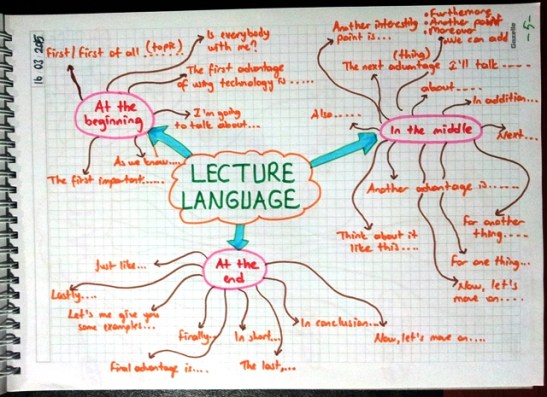 16 03 2015
Gazelle
-5-
First / First of all (topic) .....
Is everybody
with me?
The first advantage
of using technology is .....
I'm going
to talk about...
At the
beginning
As we know....
The first important.....
Another interesting
point is...
• Furthermore
• Another point
• Moreover
We can add
(thing)
The next advantage I'll talk ....
about.....
In addition...
Also.....
In the middle
Next...
Another advantage is......
Think about it
like this....
For another
thing....
For one thing...
Now, let's
move on....
LECTURE
LANGUAGE
At the
end
Just like...
Lastly....
Let's me give you
some examples...
Finally...
In short...
In conclusion...
Now, let's move on....
Final advantage is....
The last,...